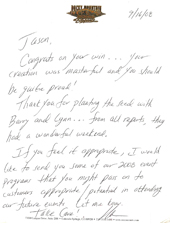 9/16/08
Jason,
Congrats on your win... your
creation was masterful and you should
be quite proud!
Thank you for planting the seeds with
Barry and Lynn... from all reports, they
had a wonderful weekend.
If you feel it appropriate, I would
like to send you some of our 2008 event
programs that you might pass on to
customers appropriate/potential in attending
our future events. Let me know.
Take Care!